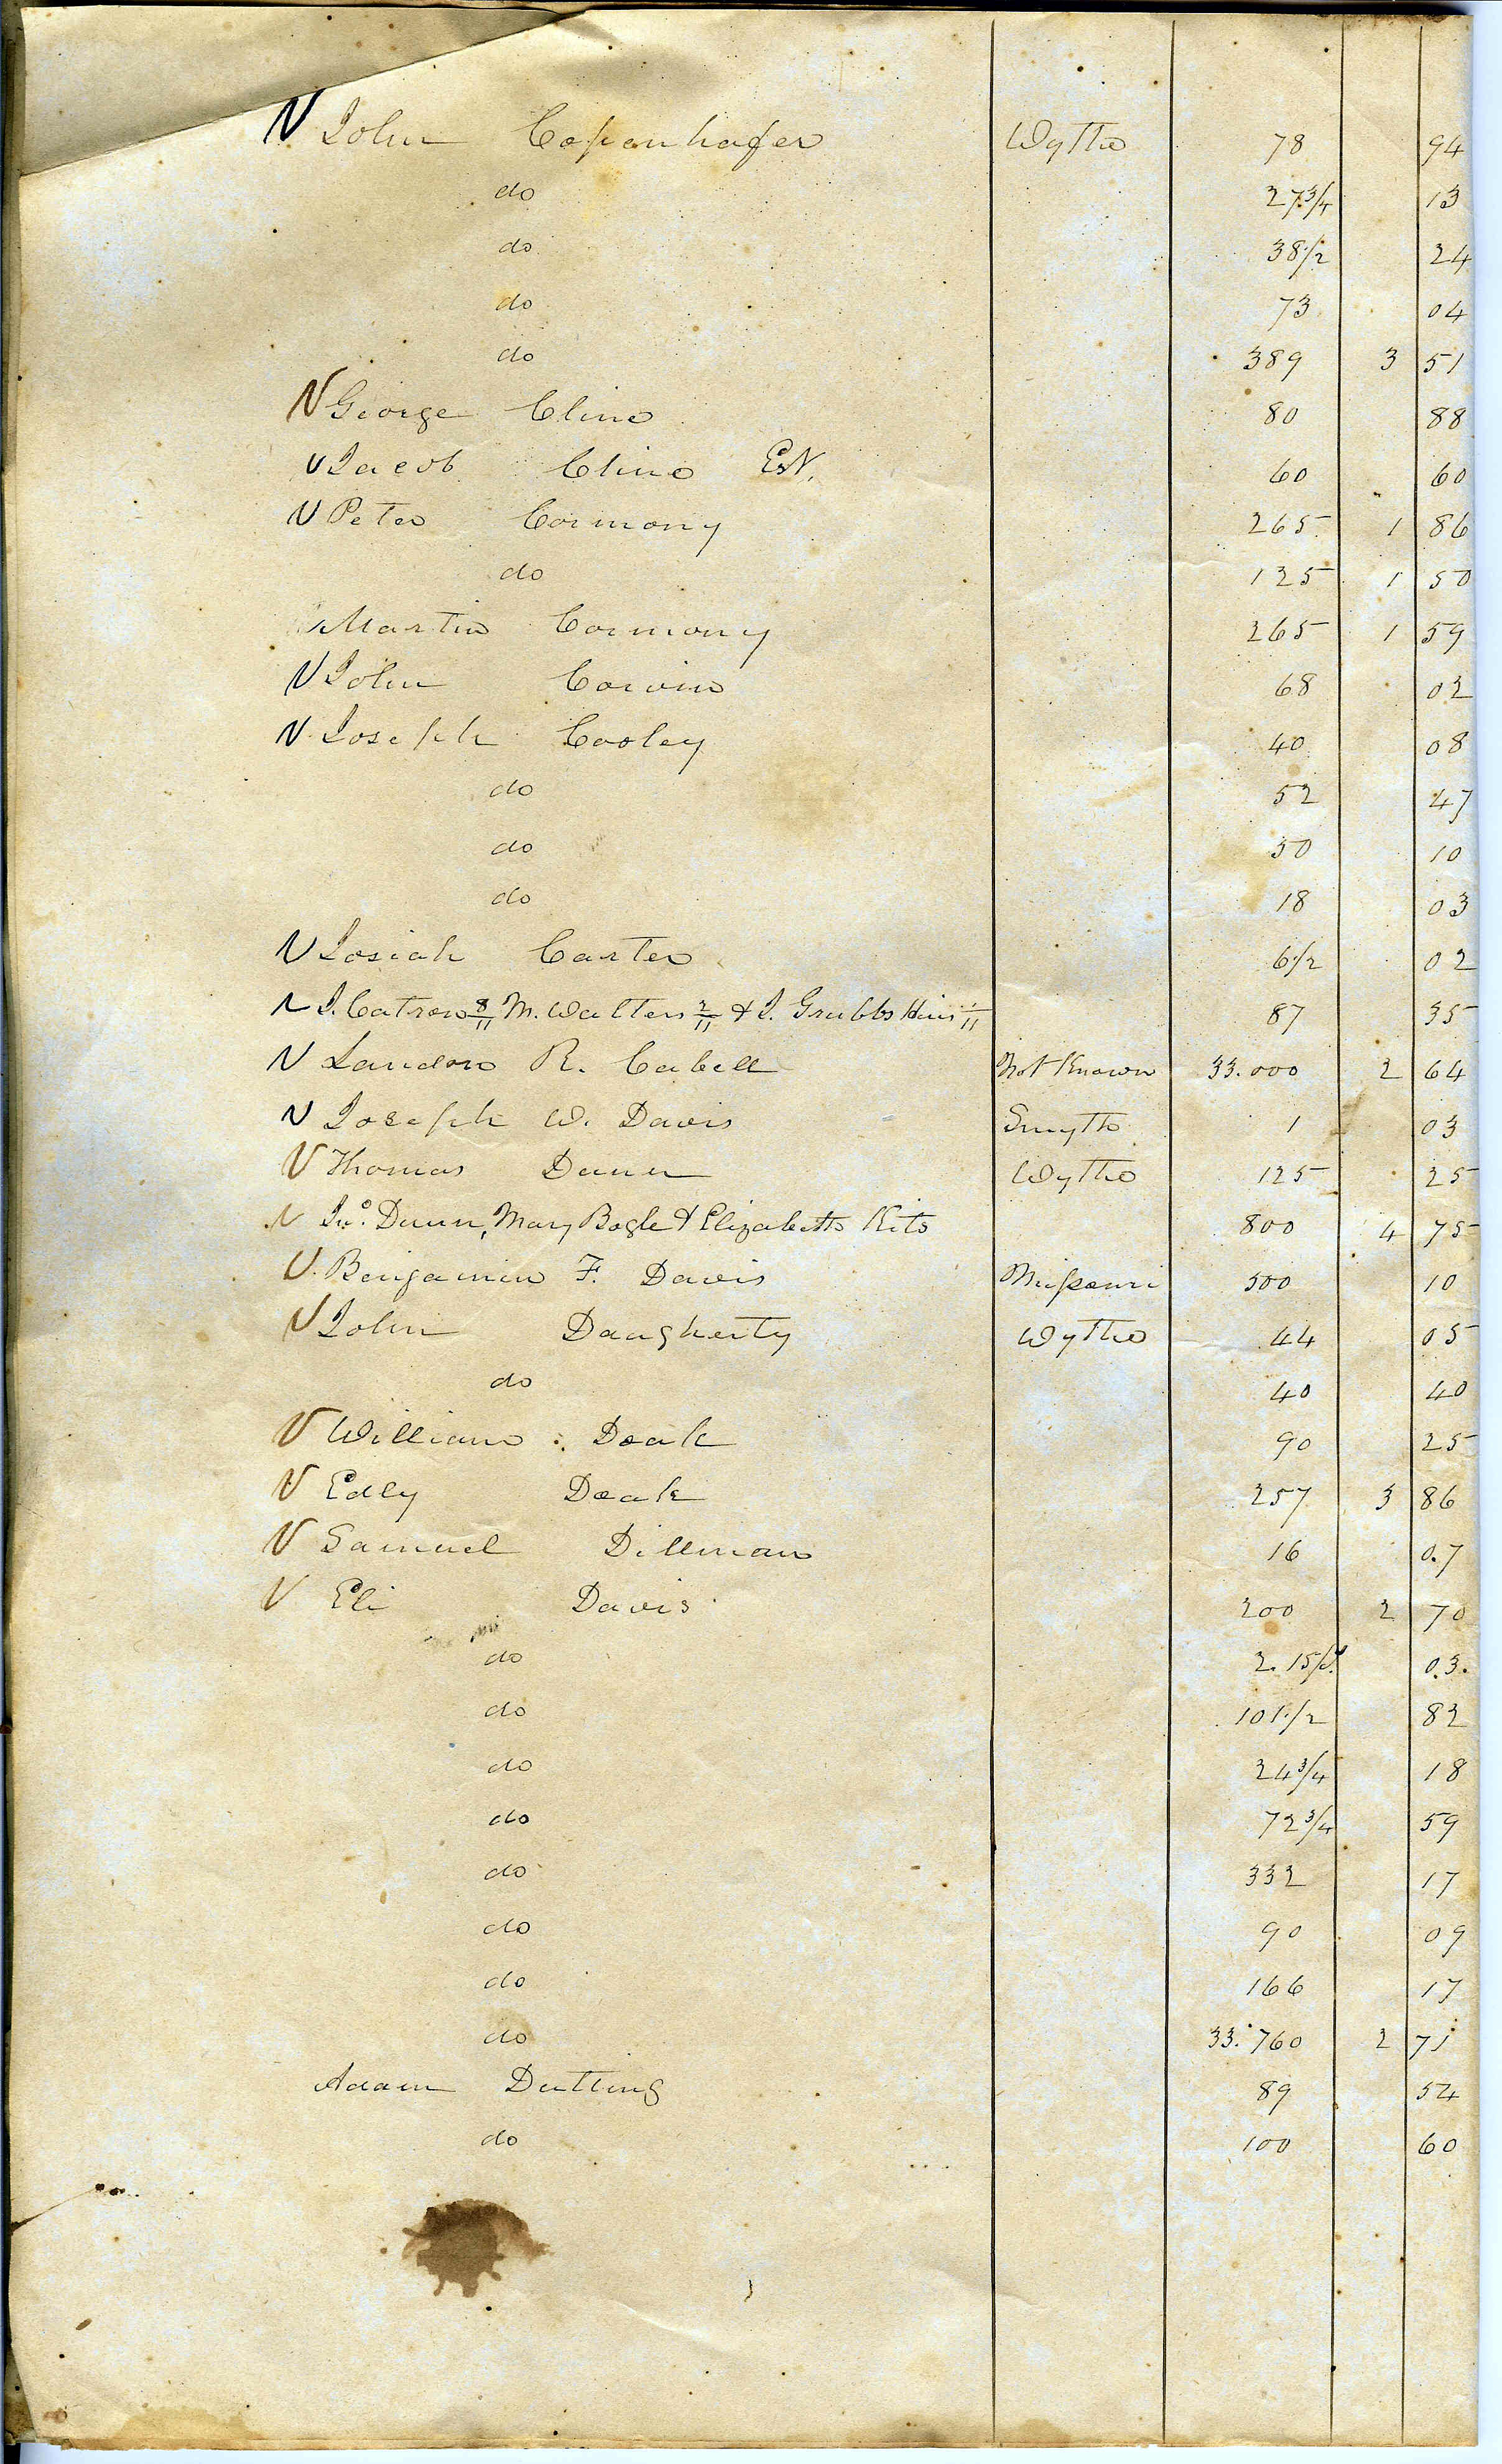 N John Copenhafer Wythe 78 94
do 27 3/4 13
do 38 1/2 24
do 73 04
do 389 3 51
N George Cline 80 88
V Jacob Cline Est. 60 60
N Peter Cormony 265 1 86
do 125 1 50
Martin Cormony 265 1 59
N John Corvin 68 02
N Joseph Cooley 40 08
do 52 47
do 50 10
do 18 03
N Josiah Carter 6 1/2 02
N J. Catron 8/11 M. Walters 2/11 & J. Grubbs Heirs 1/11 87 35
N Landon R. Cabell Not Known 33.000 2 64
N Joseph W. Davis Smyth 1 03
V Thomas Dunn Wythe 125 25
N Jno. Dunn, Mary Bogle & Elizabeth Kits 800 4 75
V Benjamin F. Davis Missouri 500 10
V John Daugherty Wythe 44 05
do 40 40
V William Doak 90 25
V Edley Doak 257 3 86
V Samuel Dillman 16 0.7
V Eli Davis 200 2 70
do 2. 15/ 03.
do 101 1/2 82
do 24 3/4 18
do 72 3/4 59
do 332 17
do 90 09
do 166 17
do 33.760 2 71
Adam Dutting 89 54
do 100 60